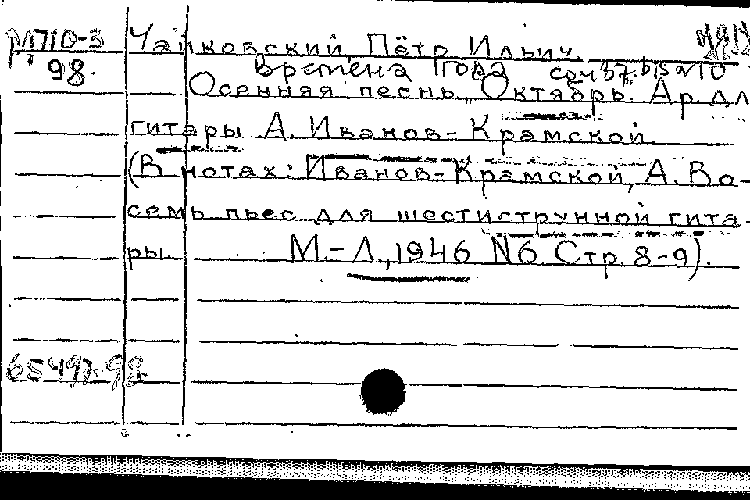 МП10-3 Чайковский, Пётр Ильич.
98. Времена года соч 37. bis №10
Осенняя песнь. Октябрь. Ар. дл
гитары А. Иванов-Крамской.
(В нотах: Иванов-Крамской, А. Во-
семь пьес для шестиструнной гита-
ры. М.-Л., 1946 N6 Стр. 8-9).